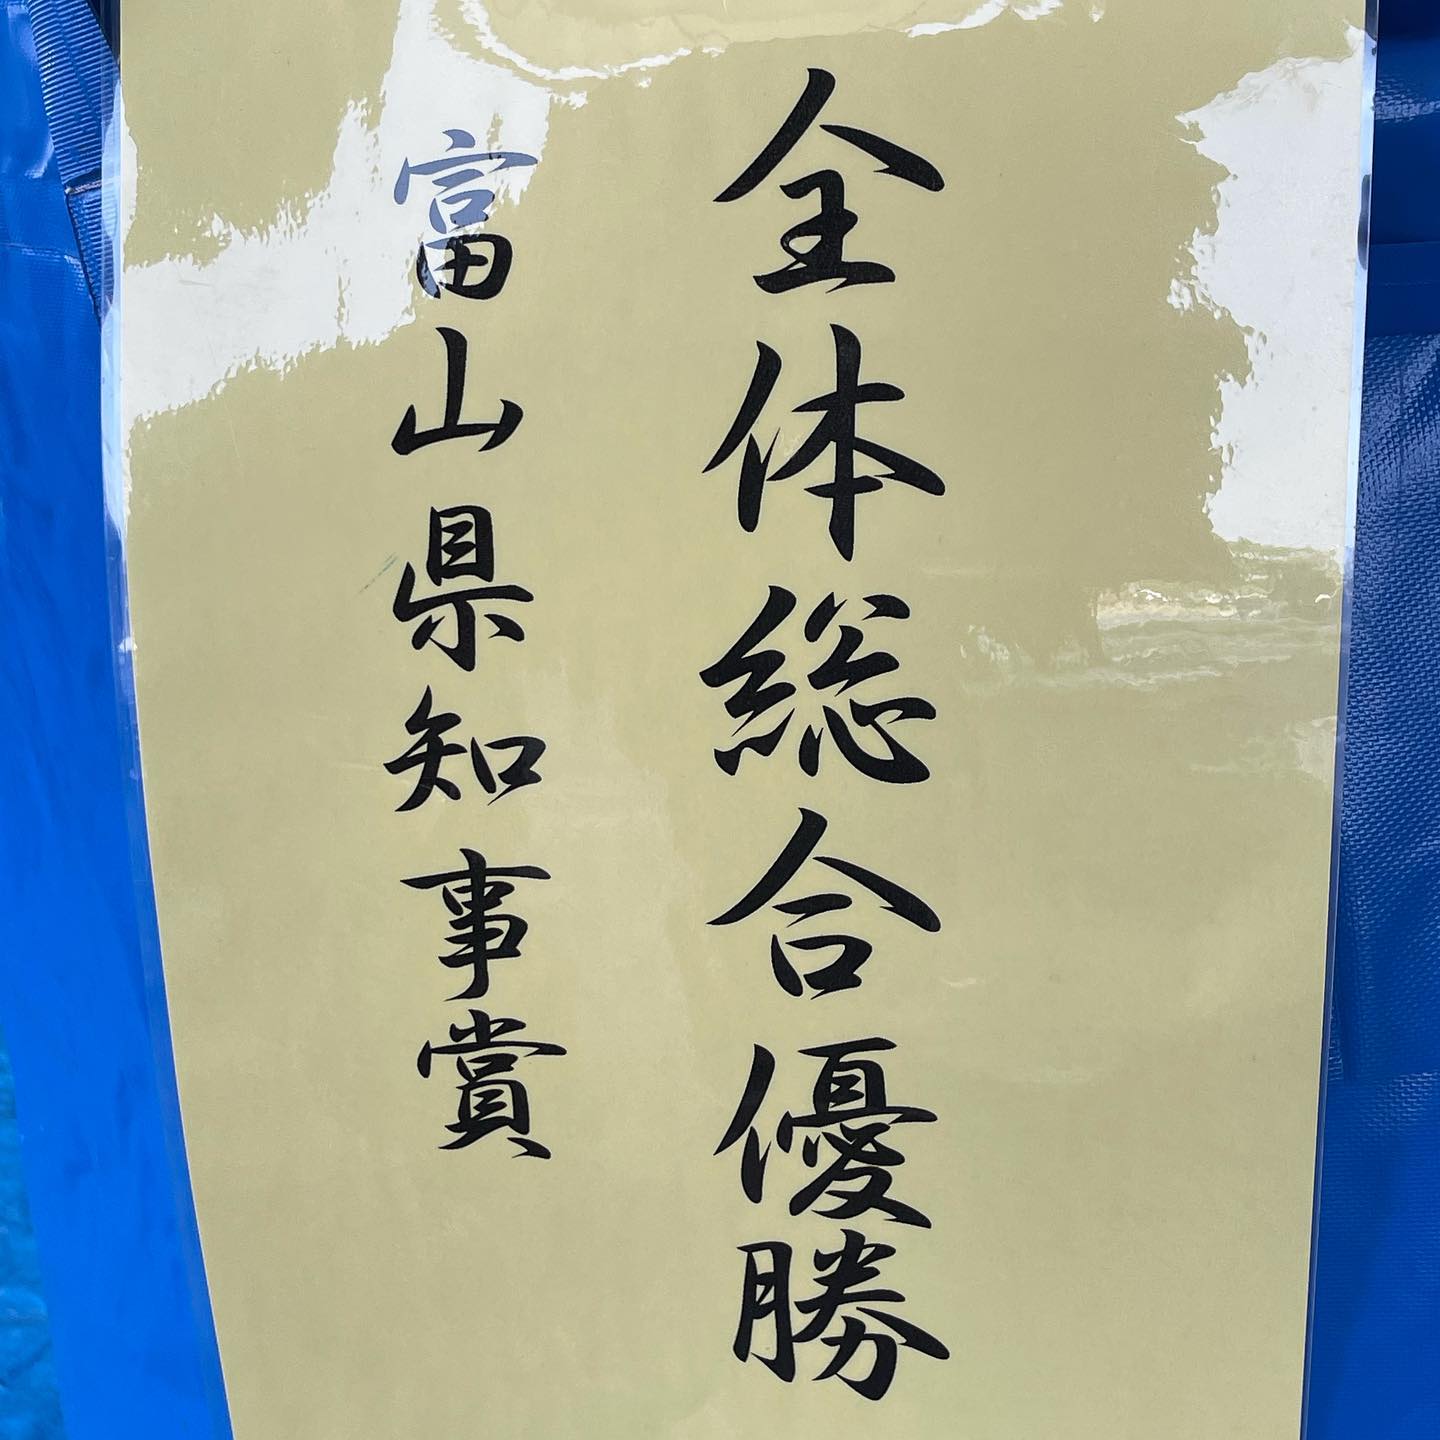 全体総合優勝
富山県知事賞